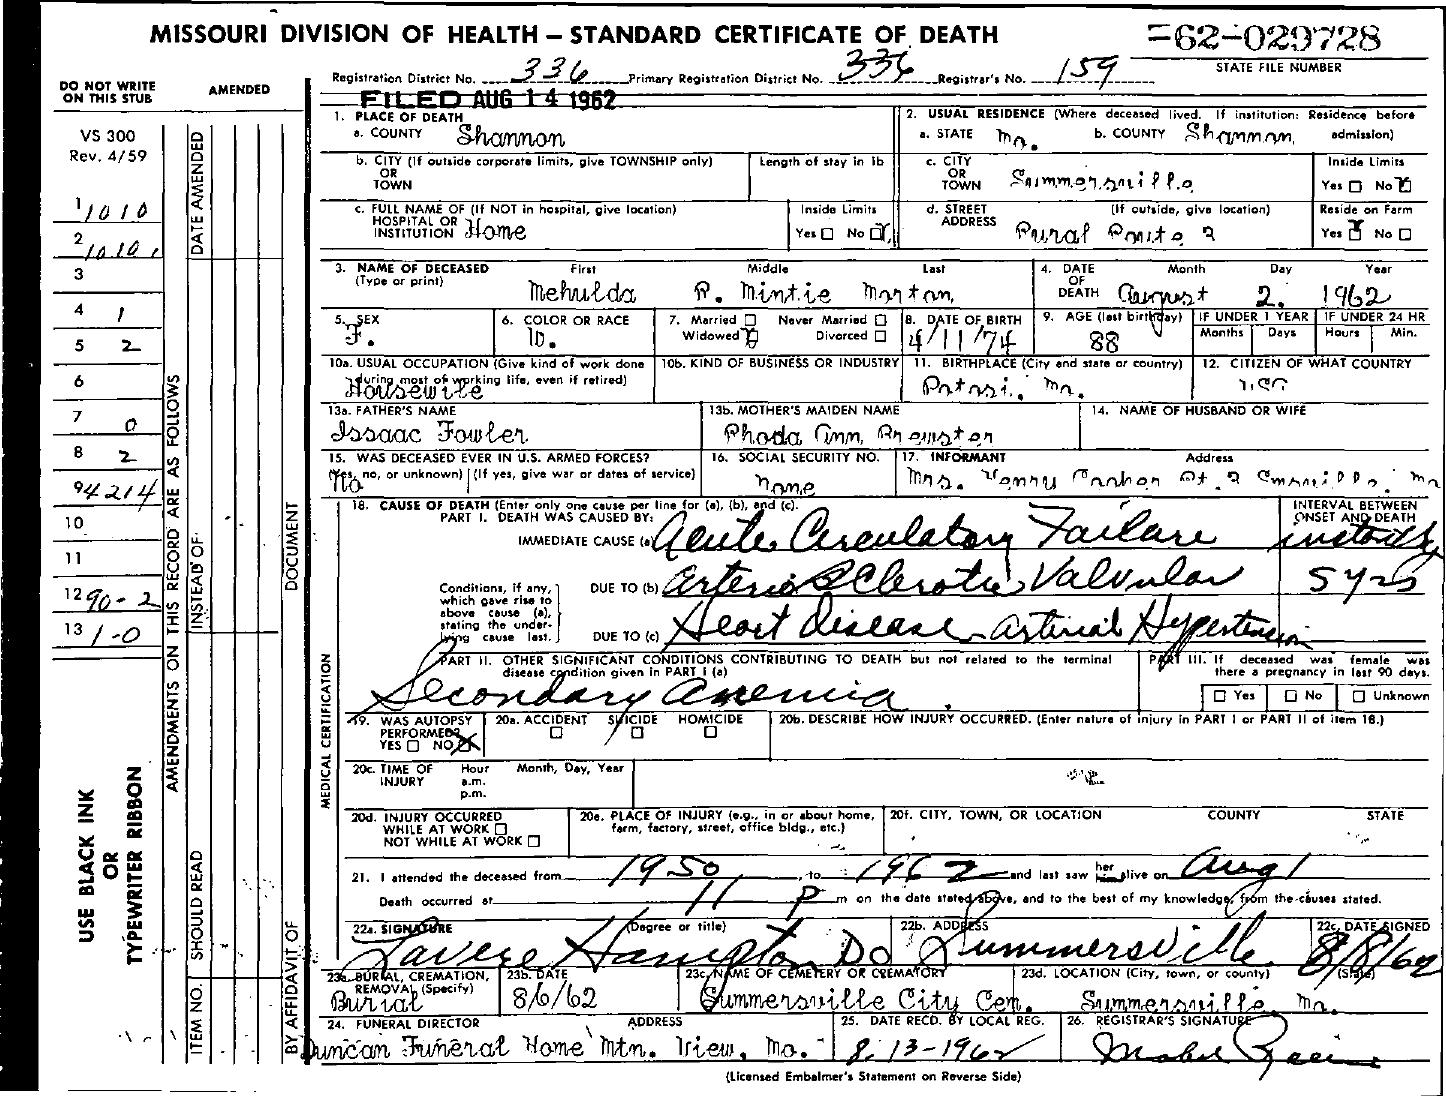 MISSOURI DIVISION OF HEALTH — STANDARD CERTIFICATE OF DEATH
=62-029728
STATE FILE NUMBER
Registration District No. 336 Primary Registration District No. 336 Registrar's No. 159
FILED AUG 14 1962
DO NOT WRITE ON THIS STUB
AMENDED
VS 300
Rev. 4/59
1 1010
2 1010
3
4 1
5 2
6
7 0
8 2
9 4214
10
11
12 90-2
13 1-0
USE BLACK INK
OR
TYPEWRITER RIBBON
AMENDMENTS ON THIS RECORD ARE AS FOLLOWS
DATE AMENDED
INSTEAD OF
SHOULD READ
ITEM NO.
DOCUMENT
BY AFFIDAVIT OF
MEDICAL CERTIFICATION
1. PLACE OF DEATH
a. COUNTY Shannon
b. CITY (If outside corporate limits, give TOWNSHIP only) OR TOWN
Length of stay in 1b
c. FULL NAME OF (If NOT in hospital, give location) HOSPITAL OR INSTITUTION Home
Inside Limits
Yes ☐ No ☒
2. USUAL RESIDENCE (Where deceased lived. If institution: Residence before admission)
a. STATE Mo. b. COUNTY Shannon
c. CITY OR TOWN Summersville
Inside Limits
Yes ☐ No ☒
d. STREET ADDRESS (If outside, give location) Rural Route 2
Reside on Farm
Yes ☒ No ☐
3. NAME OF DECEASED (Type or print)
First Middle Last
Mehulda R. Mintie Morton
4. DATE OF DEATH Month Day Year
August 2. 1962
5. SEX
F.
6. COLOR OR RACE
W.
7. Married ☐ Never Married ☐
Widowed ☒ Divorced ☐
8. DATE OF BIRTH
4/11/74
9. AGE (last birthday)
88
IF UNDER 1 YEAR
Months Days
IF UNDER 24 HR
Hours Min.
10a. USUAL OCCUPATION (Give kind of work done during most of working life, even if retired)
Housewife
10b. KIND OF BUSINESS OR INDUSTRY
11. BIRTHPLACE (City and state or country)
Potosi, Mo.
12. CITIZEN OF WHAT COUNTRY
13a. FATHER'S NAME
Issaac Fowler
13b. MOTHER'S MAIDEN NAME
Rhoda Ann Brewster
14. NAME OF HUSBAND OR WIFE
15. WAS DECEASED EVER IN U.S. ARMED FORCES?
(Yes, no, or unknown) (If yes, give war or dates of service)
No
16. SOCIAL SECURITY NO.
none
17. INFORMANT Address
Mrs. Henry Rt. 2 Mo
18. CAUSE OF DEATH (Enter only one cause per line for (a), (b), and (c).
PART I. DEATH WAS CAUSED BY:
IMMEDIATE CAUSE (a) Acute Circulatory Failure
INTERVAL BETWEEN ONSET AND DEATH
instantly
Conditions, if any, which gave rise to above cause (a), stating the underlying cause last.
DUE TO (b) Arterio Sclerotic Valvular
5 yrs
DUE TO (c) Heart disease - Arterial Hypertension
PART II. OTHER SIGNIFICANT CONDITIONS CONTRIBUTING TO DEATH but not related to the terminal disease condition given in PART I (a)
Secondary anemia.
PART III. If deceased was female was there a pregnancy in last 90 days.
☐ Yes ☐ No ☐ Unknown
19. WAS AUTOPSY PERFORMED?
YES ☐ NO ☒
20a. ACCIDENT SUICIDE HOMICIDE
☐ ☐ ☐
20b. DESCRIBE HOW INJURY OCCURRED. (Enter nature of injury in PART I or PART II of item 18.)
20c. TIME OF INJURY Hour Month, Day, Year
a.m.
p.m.
20d. INJURY OCCURRED
WHILE AT WORK ☐
NOT WHILE AT WORK ☐
20e. PLACE OF INJURY (e.g., in or about home, farm, factory, street, office bldg., etc.)
20f. CITY, TOWN, OR LOCATION COUNTY STATE
21. I attended the deceased from 1950, to 1962 and last saw her him alive on Aug 1
Death occurred at 11 P m on the date stated above, and to the best of my knowledge, from the causes stated.
22a. SIGNATURE (Degree or title)
DO
22b. ADDRESS
Summersville
22c. DATE SIGNED
8/8/62
23a. BURIAL, CREMATION, REMOVAL (Specify)
Burial
23b. DATE
8/6/62
23c. NAME OF CEMETERY OR CREMATORY
Summersville City Cem.
23d. LOCATION (City, town, or county) (State)
Summersville, Mo.
24. FUNERAL DIRECTOR ADDRESS
Duncan Funeral Home Mtn. View, Mo.
25. DATE RECD. BY LOCAL REG.
8-13-1962
26. REGISTRAR'S SIGNATURE
Mabel
(Licensed Embalmer's Statement on Reverse Side)